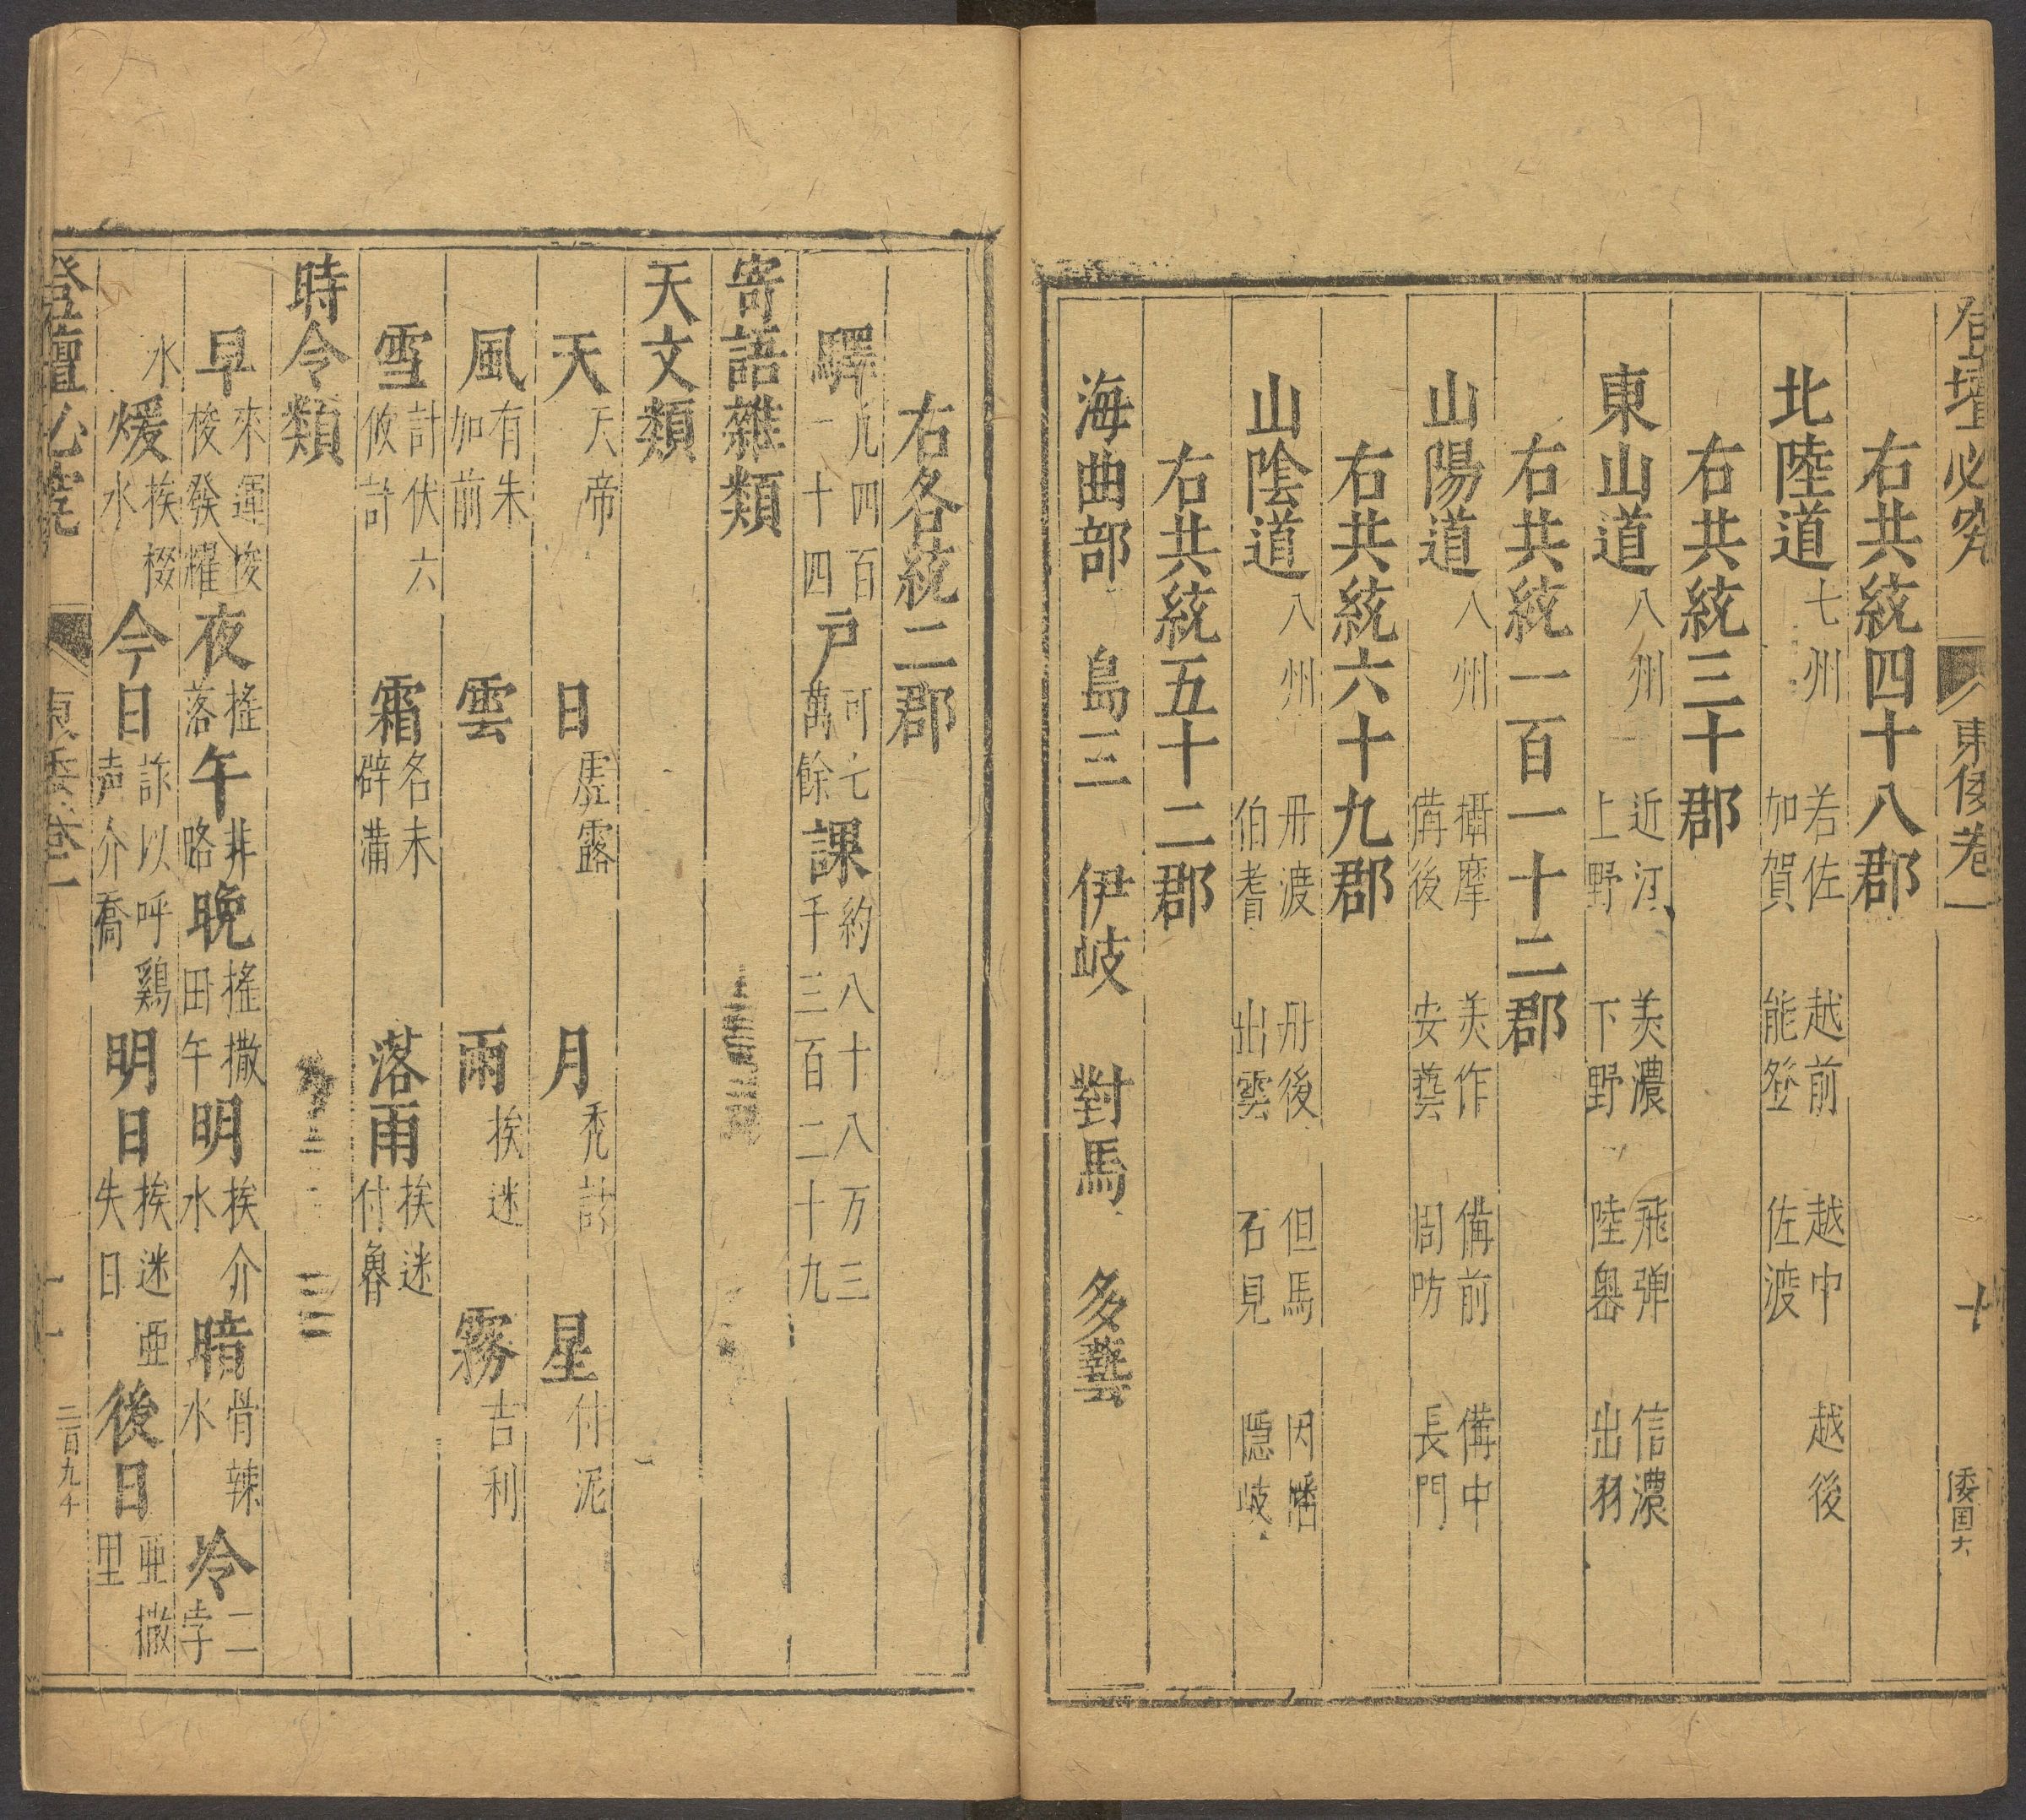 登壇必究 東倭卷一 十 倭国六
右共統四十八郡
北陸道 七州 若佐 越前 越中 越後 加賀 能登 佐渡
右共統三十郡
東山道 八州 近江 美濃 飛彈 信濃 上野 下野 陸奧 出羽
右共統一百一十二郡
山陽道 八州 攝摩 美作 備前 備中 備後 安藝 周防 長門
右共統六十九郡
山陰道 八州 丹渡 丹後 但馬 因幡 伯耆 出雲 石見 隱岐
右共統五十二郡
海曲部 島三 伊岐 對馬 多藝
右各統二郡
驛 凡四百一十四 戶 可七萬餘 課 約八十八万三千三百二十九
寄語雜類
天文類
天 天帝 日 虛露 月 禿計 星 付泥
風 有朱加前 雲 雨 挨迷 霧 吉利
雪 計伏六攸計 霜 名未辟蒲 落雨 挨迷付魯
時令類
早 來運梭梭發耀 夜 搖落 午 非路 晚 搖撒田午 明 挨介水 暗 骨辣水 冷 二孛
水 煖 挨掇水 今日 詐以呼鷄声介喬 明日 挨迷亜失日 後日 亜撒里
登壇必究 東倭卷一 十一 二百九十